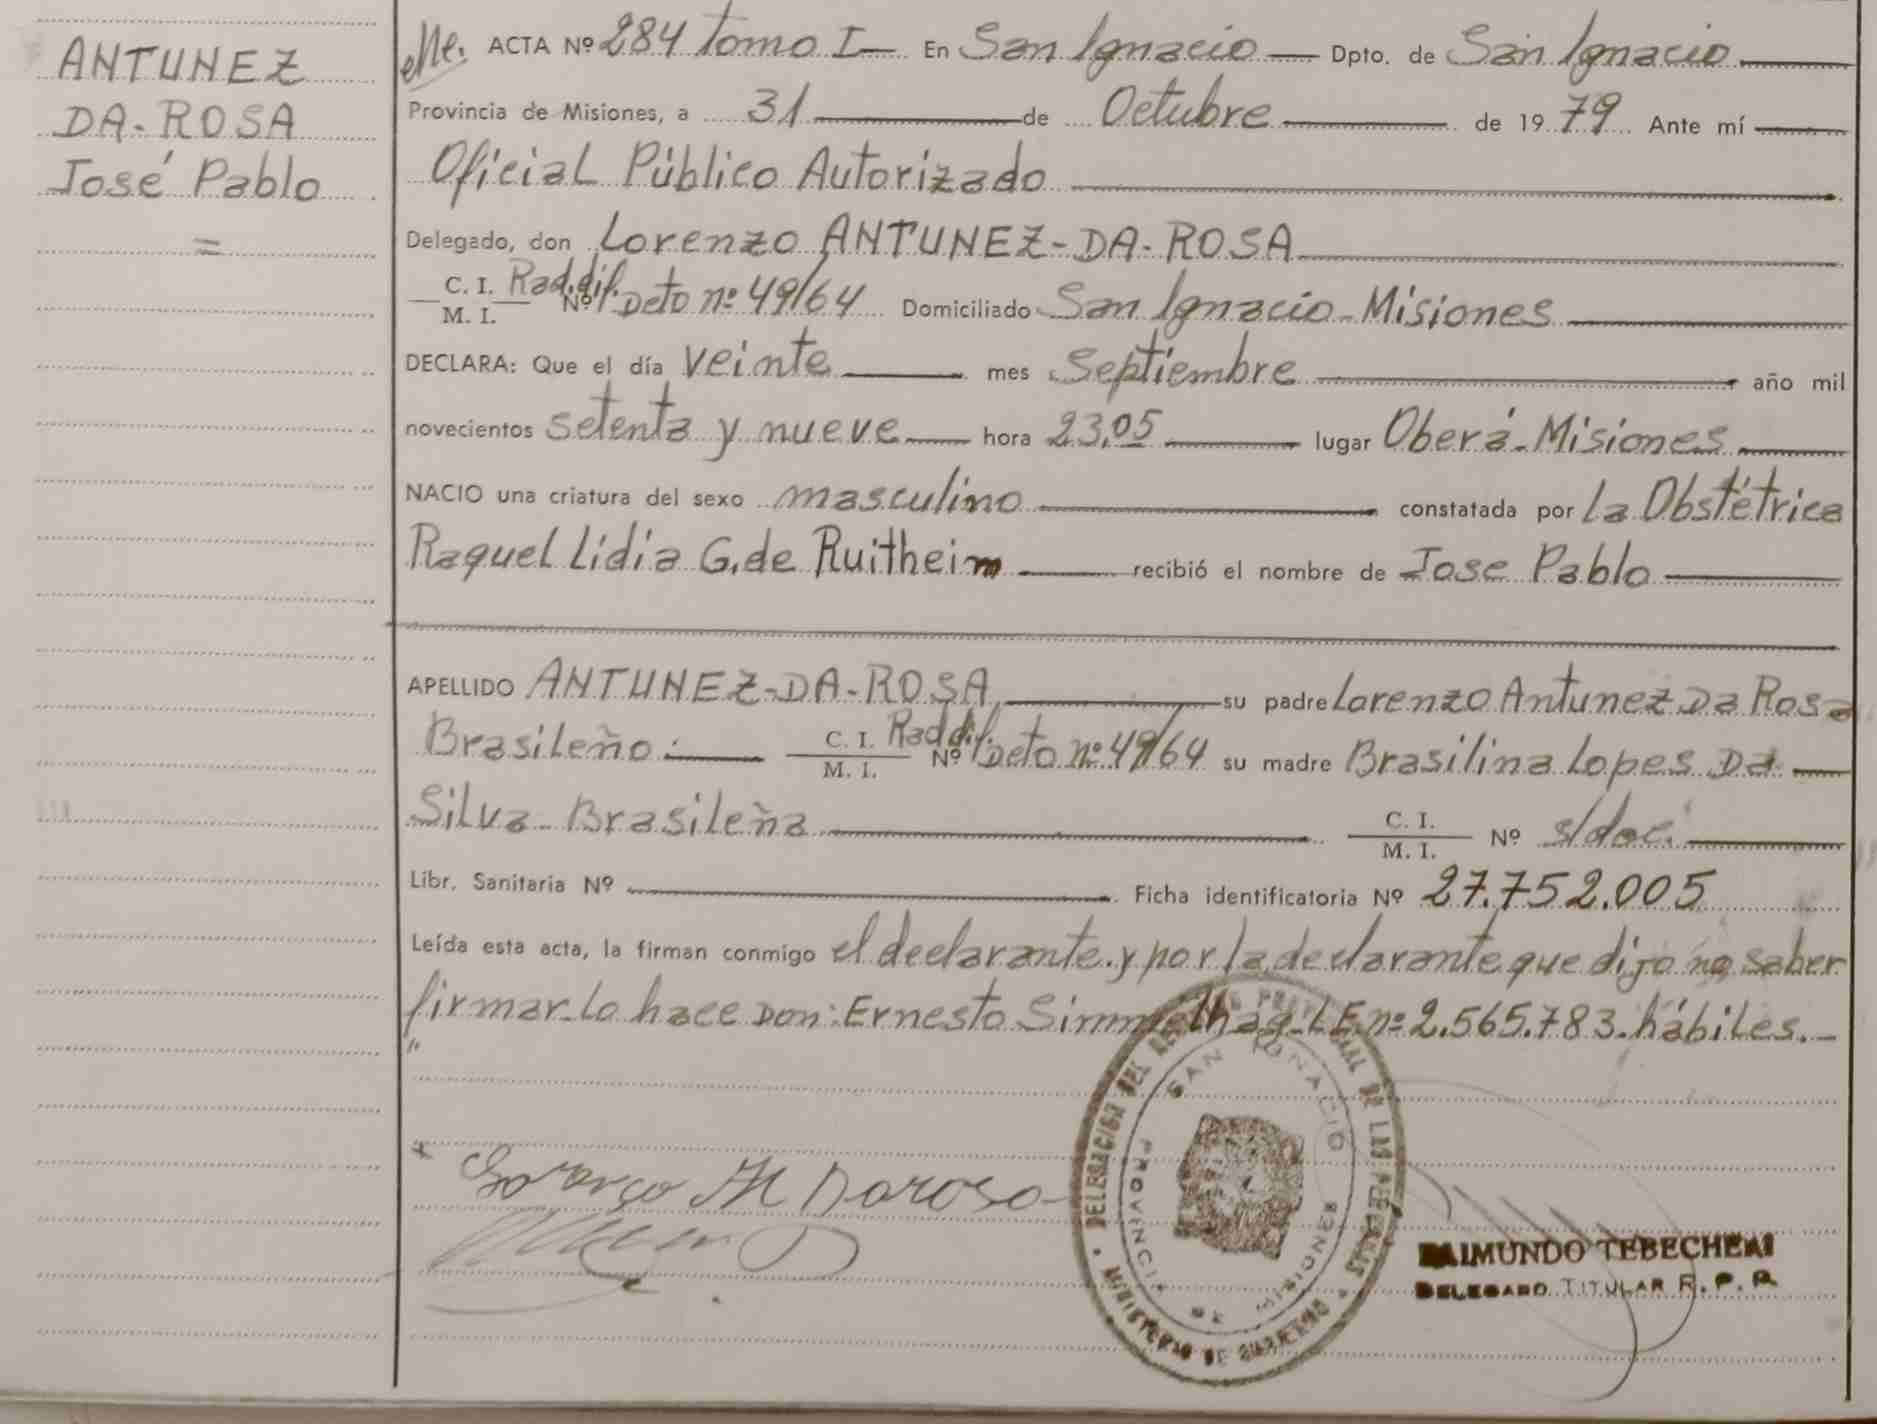 ANTUNEZ
DA-ROSA
José Pablo
=
ACTA Nº 284 Tomo I — En San Ignacio — Dpto. de San Ignacio
Provincia de Misiones, a 31 de Octubre de 1979 Ante mí
Oficial Público Autorizado
Delegado, don Lorenzo ANTUNEZ-DA-ROSA
C. I. M. I. Nº Rad.dif. Dcto nº 49/64 Domiciliado San Ignacio - Misiones
DECLARA: Que el día veinte mes Septiembre año mil
novecientos setenta y nueve hora 23,05 lugar Oberá - Misiones
NACIO una criatura del sexo masculino constatada por La Obstétrica
Raquel Lidia G. de Ruitheim recibió el nombre de Jose Pablo
APELLIDO ANTUNEZ-DA-ROSA su padre Lorenzo Antunez Da Rosa
Brasileño : C. I. M. I. Nº Rad dif. Dcto nº 49/64 su madre Brasilina Lopes Da
Silva - Brasileña C. I. M. I. Nº s/doc.
Libr. Sanitaria Nº Ficha identificatoria Nº 27.752.005
Leída esta acta, la firman conmigo el declarante. y por la declarante que dijo no saber
firmar lo hace Don: Ernesto L.E. nº 2.565.783. hábiles. -
DELEGACION DEL REGISTRO PROVINCIAL DE LAS PERSONAS
MINISTERIO DE GOBIERNO
SAN IGNACIO
PROVINCIA DE MISIONES
RAIMUNDO TEBECHERI
DELEGADO TITULAR R. P. P.